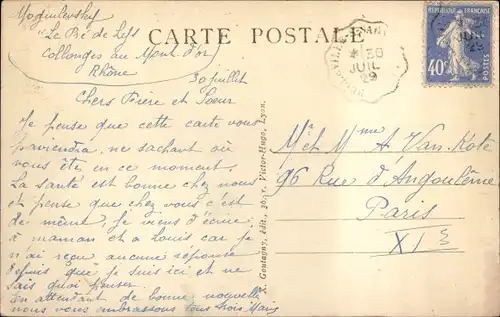 Moguilevsky
"Le Bé de Lefs
Collonges au Mont d'or
Rhône
CARTE POSTALE
30 JUIL 29
RÉPUBLIQUE FRANÇAISE
40c
POSTES
30 juillet
Chers Frère et Soeur
Je pense que cette carte vous
parviendra, ne sachant où
vous êtes en ce moment.
La santé est bonne chez nous
et pense que chez vous c'est
de même, je viens d'écrire
à maman et à Louis car je
n'ai reçu aucune réponse
depuis que je suis ici et ne
sais quoi penser.
En attendant de bonne nouvelle
nous vous embrassons tous trois
X. Goutagny, édit., 30, r. Victor-Hugo, Lyon.
Mr et Mme A. Van-Kote
96 Rue d'Angoulême
Paris
XIe